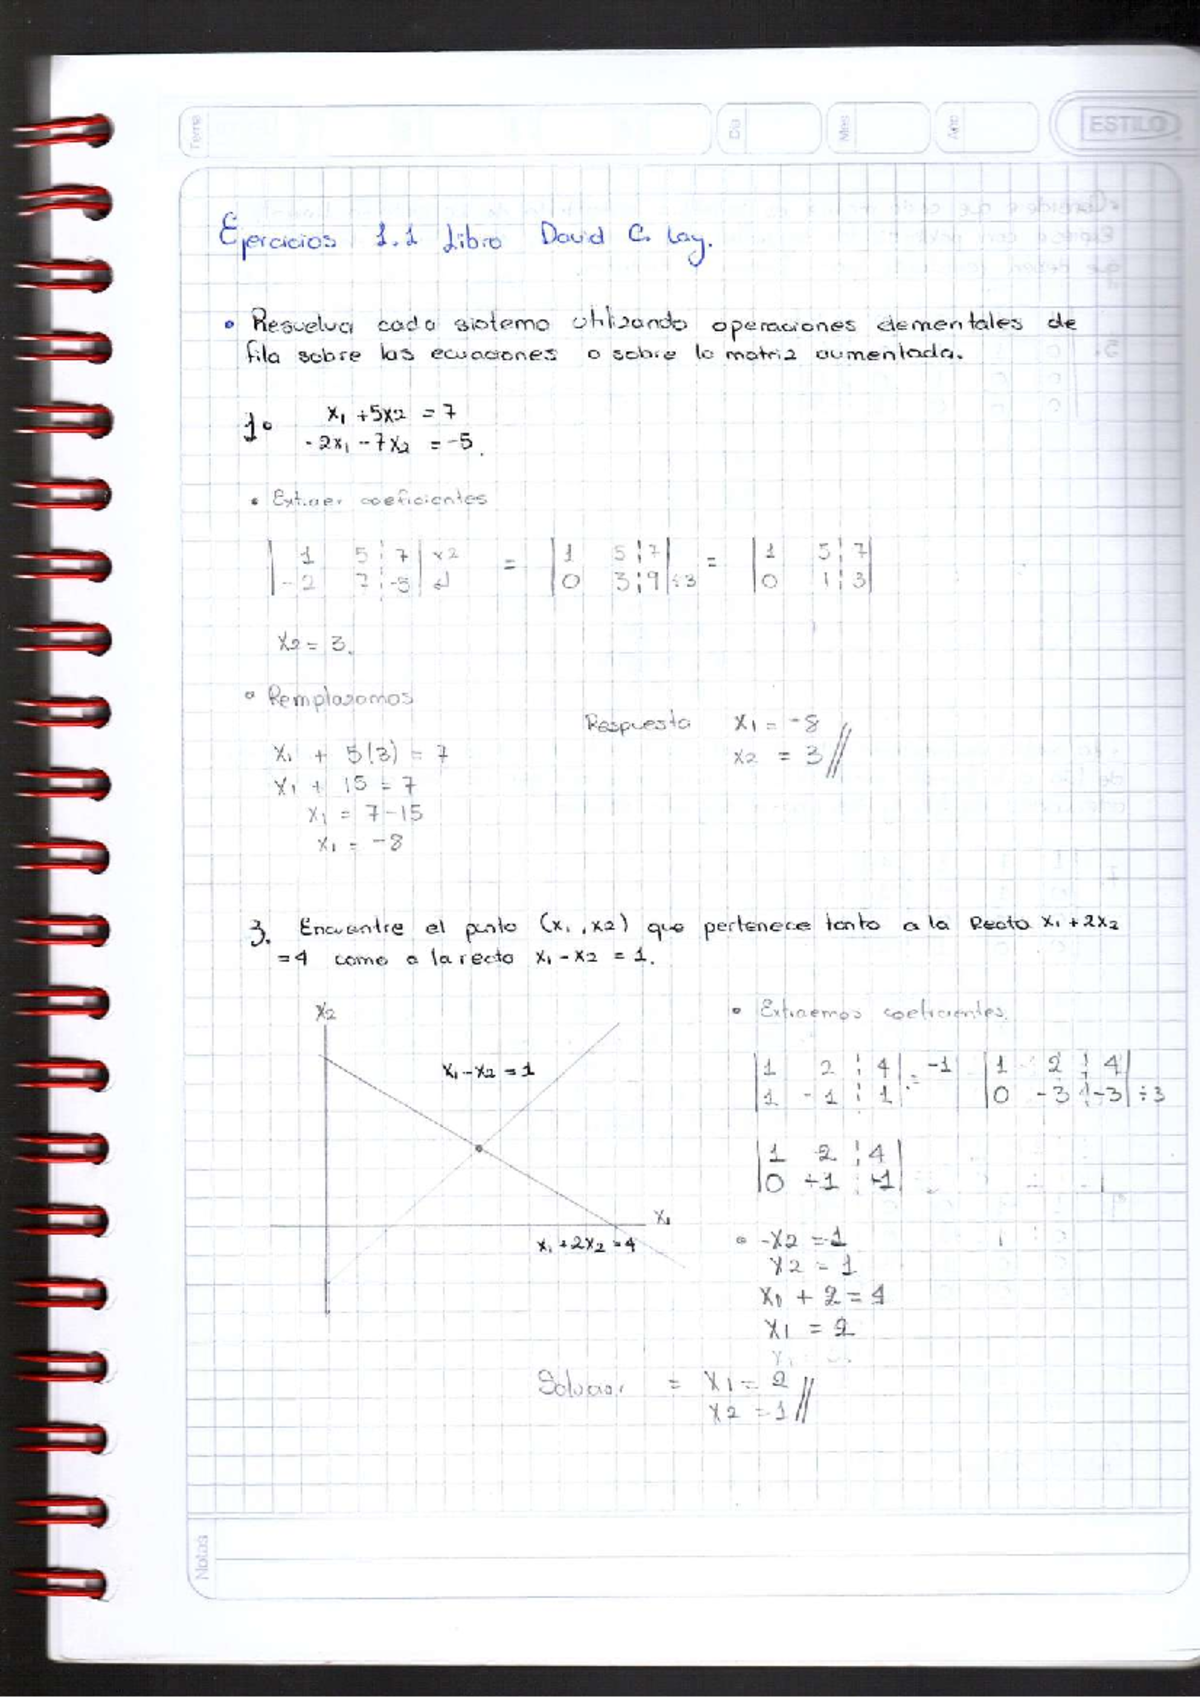 Tema
Dia
Mes
Año
ESTILO
Ejercicios 1.1 Libro David C. Lay.
• Resuelva cada sistema utilizando operaciones elementales de
fila sobre las ecuaciones o sobre la matriz aumentada.
1• x₁ + 5x2 = 7
-2x₁ - 7x₂ = -5.
• Extraer coeficientes
| 1 5 ¦ 7 | x2 = | 1 5 ¦ 7 | = | 1 5 ¦ 7 |
| -2 7 ¦ -5 | ↲ | 0 3 ¦ 9 | ÷3 | 0 1 ¦ 3 |
X2 = 3.
• Remplazamos
Respuesta X₁ = -8
x2 = 3 //
X₁ + 5(3) = 7
X₁ + 15 = 7
X₁ = 7-15
X₁ = -8
3. Encuentre el punto (x₁, x2) que pertenece tanto a la Recta x₁ + 2x2
= 4 como a la recta x₁ - x2 = 1.
X2
X₁ - X2 = 1
X₁
X₁ + 2X2 = 4
• Extraemos coeficientes.
| 1 2 ¦ 4 | = -1 | 1 2 ¦ 4 |
| 1 -1 ¦ 1 | | 0 -3 ¦ -3 | ÷3
| 1 2 ¦ 4 |
| 0 +1 ¦ +1 |
• -X2 = -1
X2 = 1
X₁ + 2 = 4
X1 = 2
Solucion = X1 = 2
X2 = 1 //
Notas